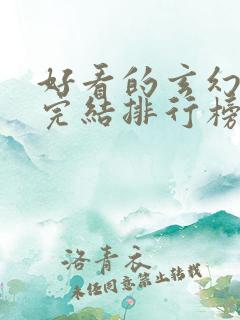 好看的玄幻
完结排行榜
洛青衣
未经同意禁止转载